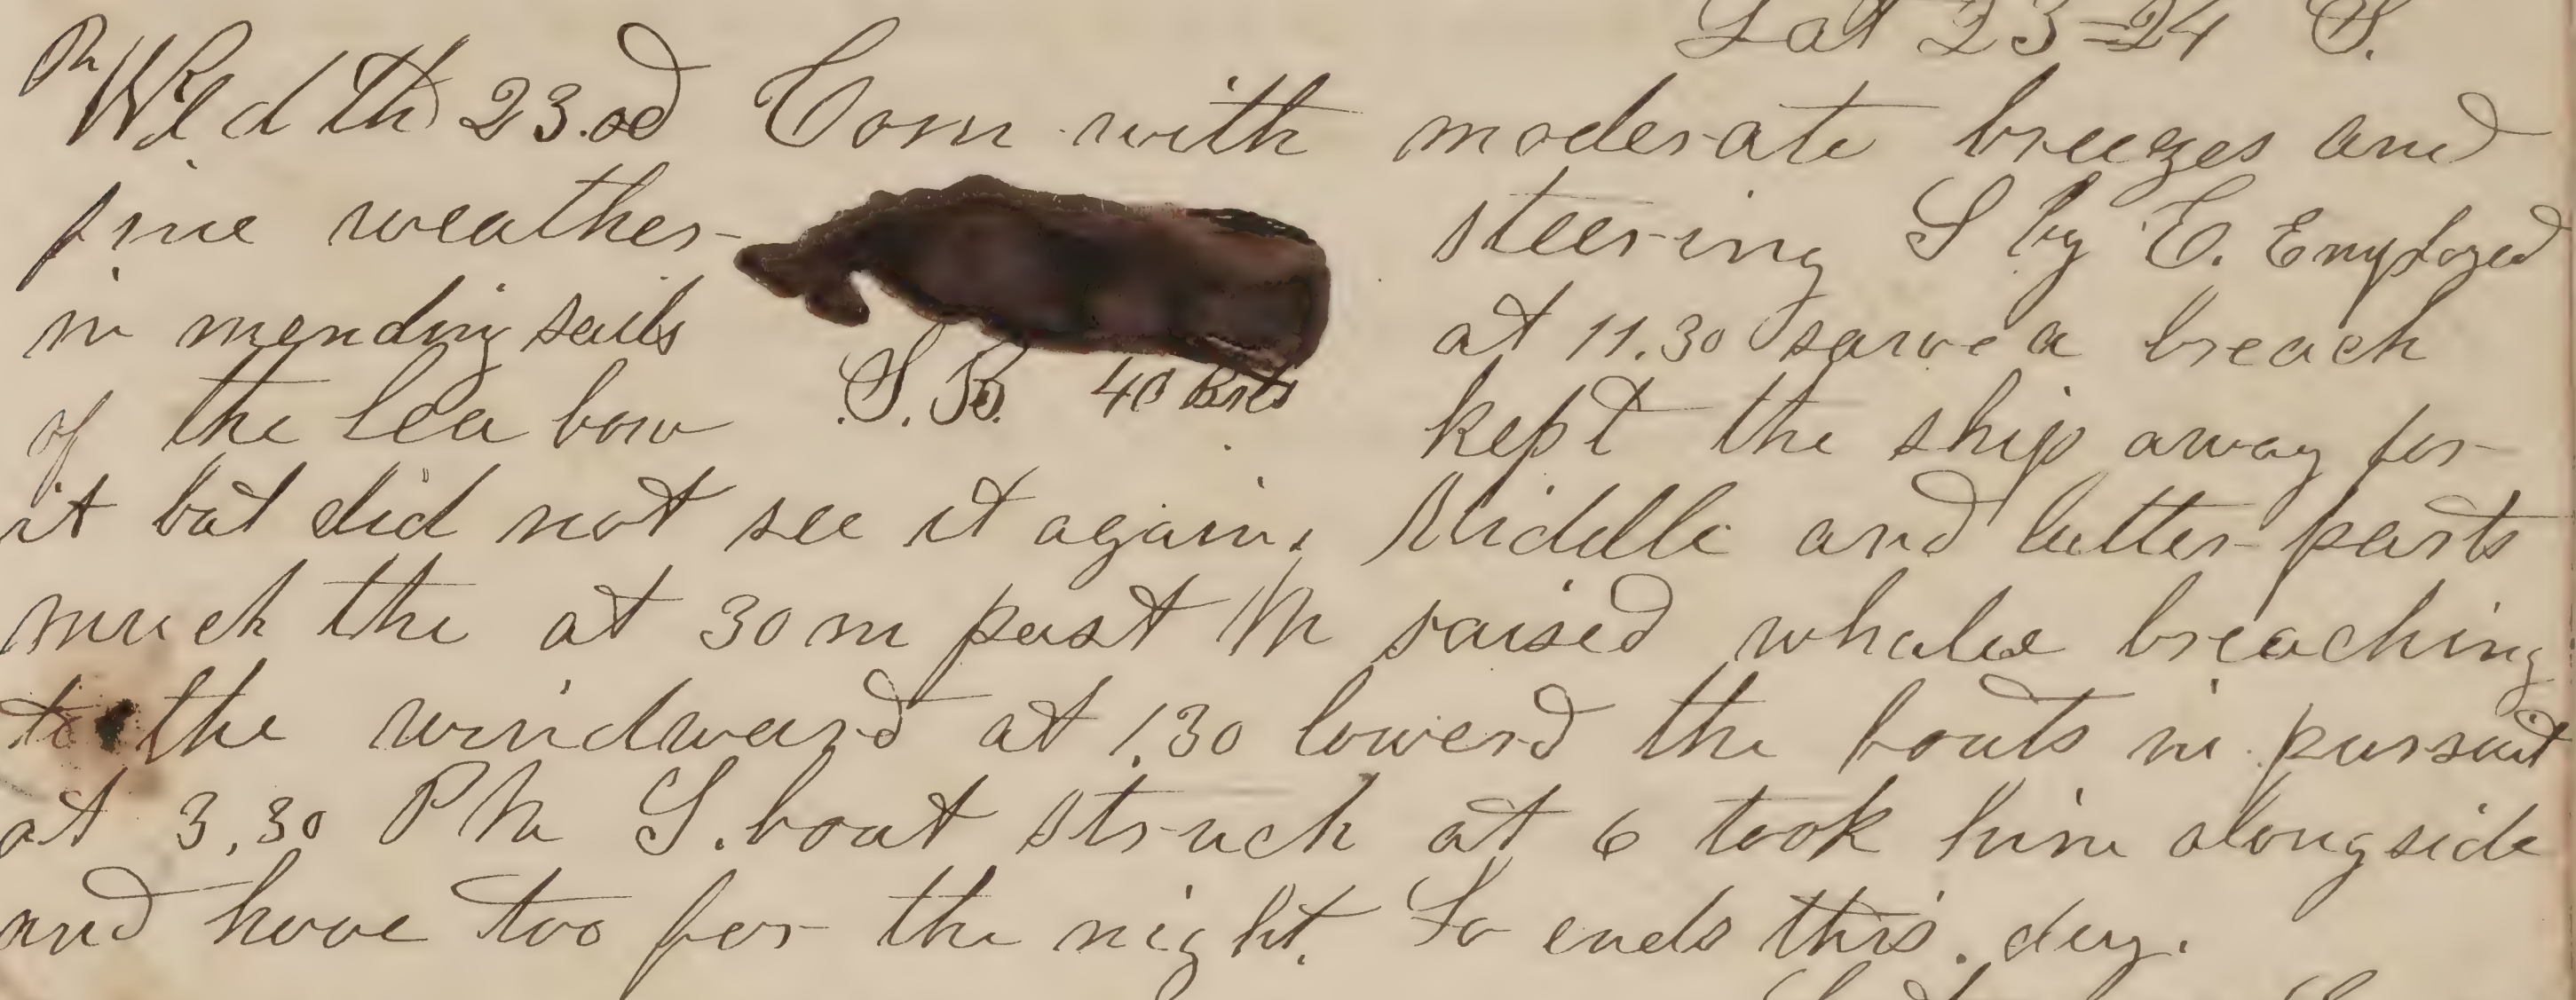 Lat 23=24 S.
Wed th 23.od Com with moderate breezes and
fine weather steering S by E. Employed
in mending sails at 11.30 sawe a breach
of the Lea bow S. B. 40 Brls kept the ship away for
it but did not see it again. Middle and latter parts
much the at 30 m past M raised whales breaching
to the windward at 1.30 lowerd the boats in pursuit
at 3.30 PM S. boat struck at 6 took him alongside
and hove too for the night. So ends this day.